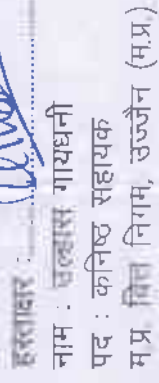 हस्ताक्षर :
नाम : उल्हास गायधनी
पद : कनिष्ठ सहायक
म.प्र. वित्त निगम, उज्जैन (म.प्र.)